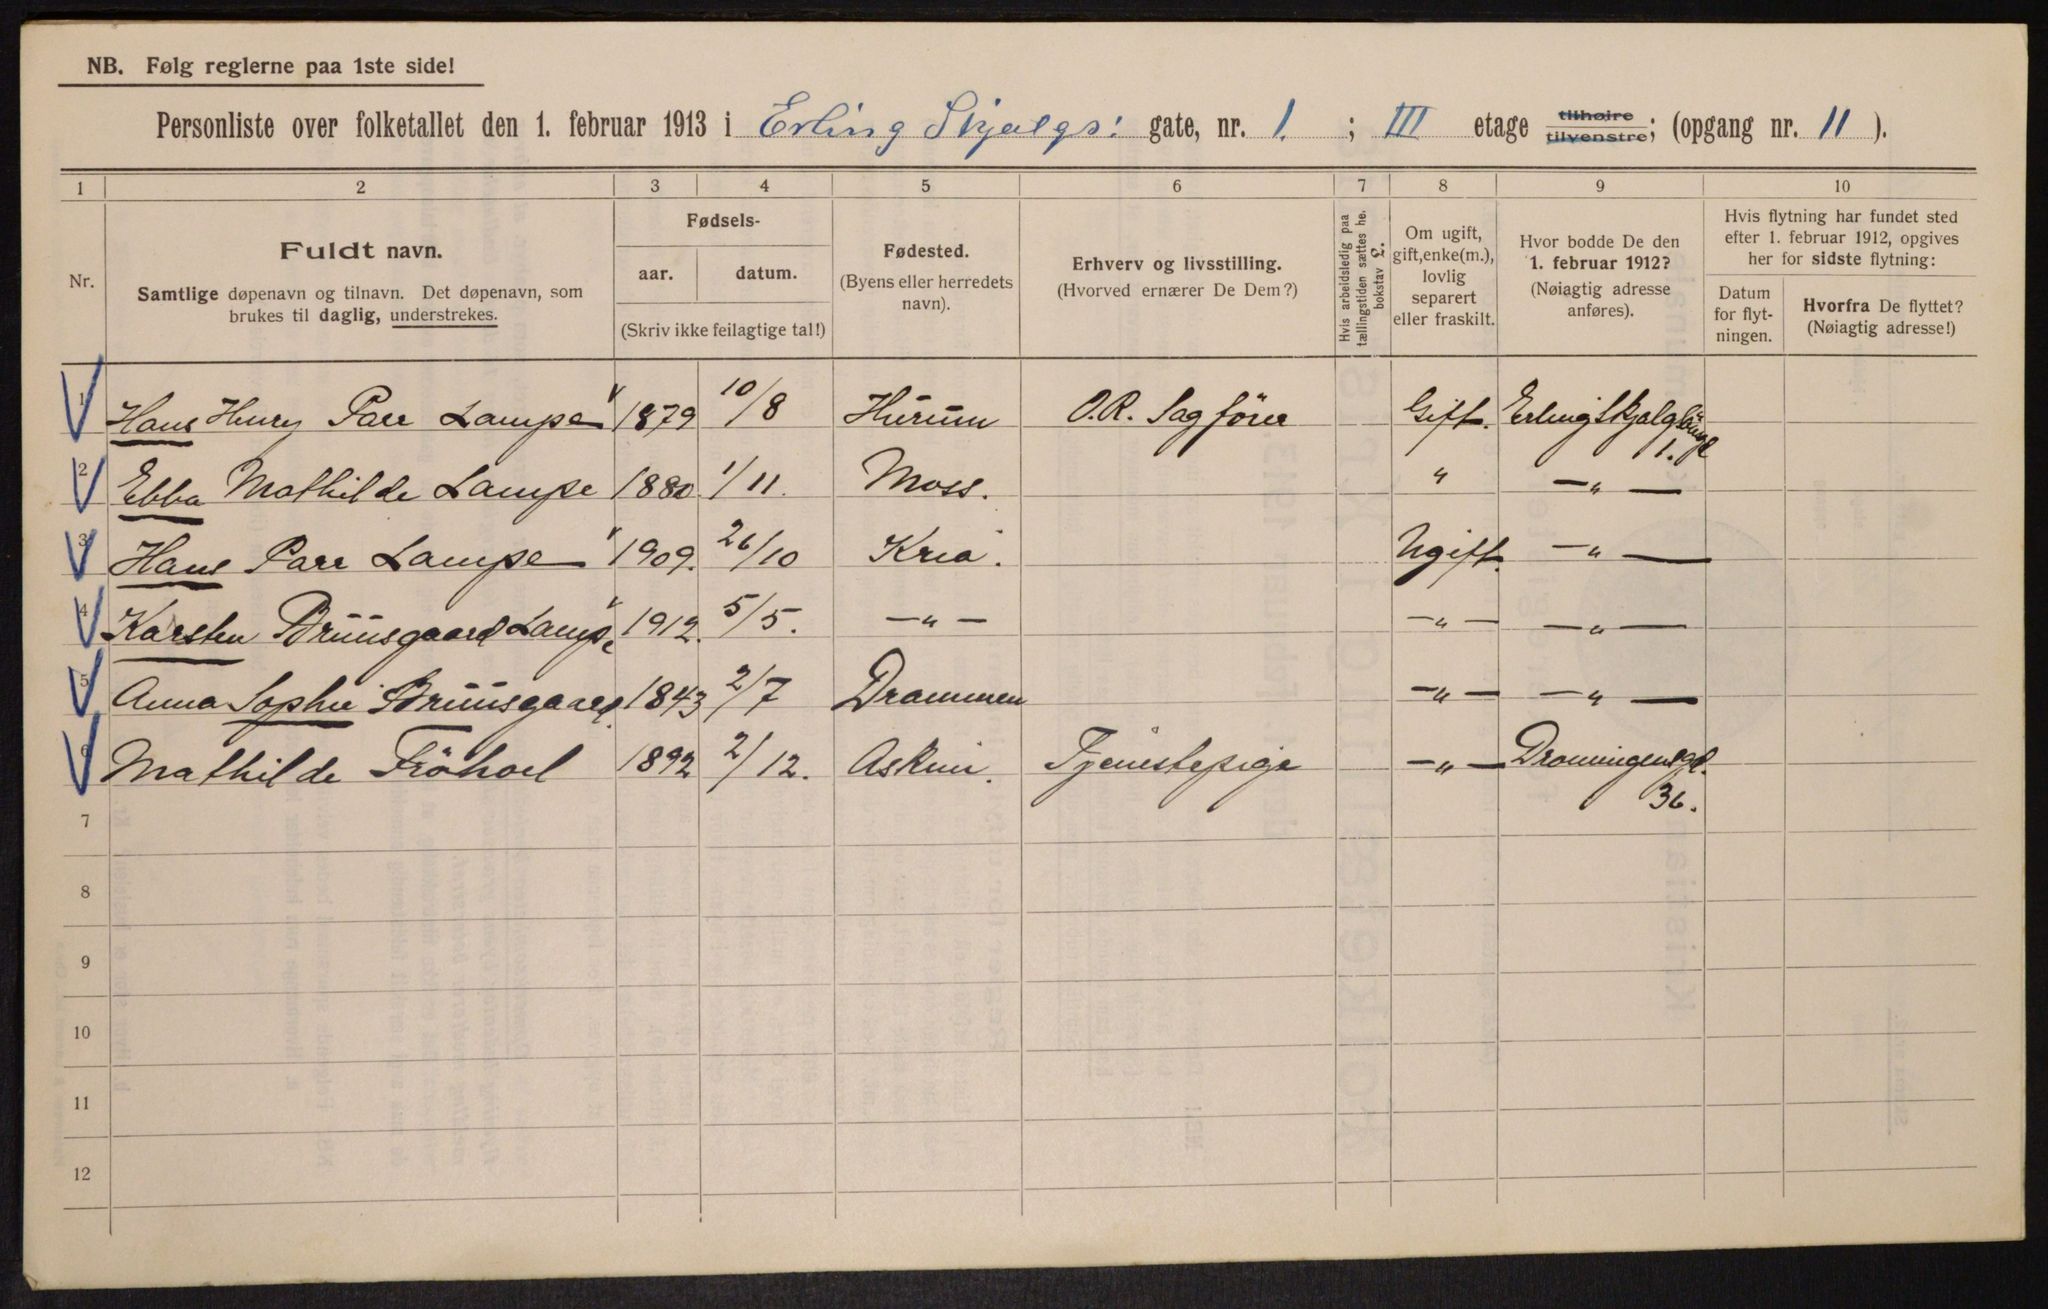 NB. Følg reglerne paa 1ste side!
Personliste over folketallet den 1. februar 1913 i Erling Skjalgs: gate, nr. 1. ; III etage tilhøire tilvenstre; (opgang nr. 11 ).
1 2 3 4 5 6 7 8 9 10
Nr.
Fuldt navn.
Samtlige døpenavn og tilnavn. Det døpenavn, som
brukes til daglig, understrekes.
Fødsels-
aar. datum.
(Skriv ikke feilagtige tal!)
Fødested.
(Byens eller herredets
navn).
Erhverv og livsstilling.
(Hvorved ernærer De Dem?)
Hvis arbeidsledig paa
tællingstiden sættes he.
bokstav L.
Om ugift,
gift, enke(m.),
lovlig
separert
eller fraskilt.
Hvor bodde De den
1. februar 1912?
(Nøiagtig adresse
anføres).
Hvis flytning har fundet sted
efter 1. februar 1912, opgives
her for sidste flytning:
Datum
for flyt-
ningen.
Hvorfra De flyttet?
(Nøiagtig adresse!)
1 Hans Henry Parr Lampe 1879 10/8 Hurum O.R. Sagfører Gift. Erling Skjalgs
1.
2 Ebba Mathilde Lampe 1880 1/11. Moss. " —"—
3 Hans Parr Lampe 1909. 26/10 Kria. Ugift. —"—
4 Karsten Bruusgaard Lampe 1912. 5/5. —"— —"— —"—
5 Anna Sophie Bruusgaard 1843 2/7 Drammen —"— —"—
6 Mathilde Fröhoel 1892 2/12. Askim. Tjenestepige —"— Dronningensgt.
36.
7
8
9
10
11
12